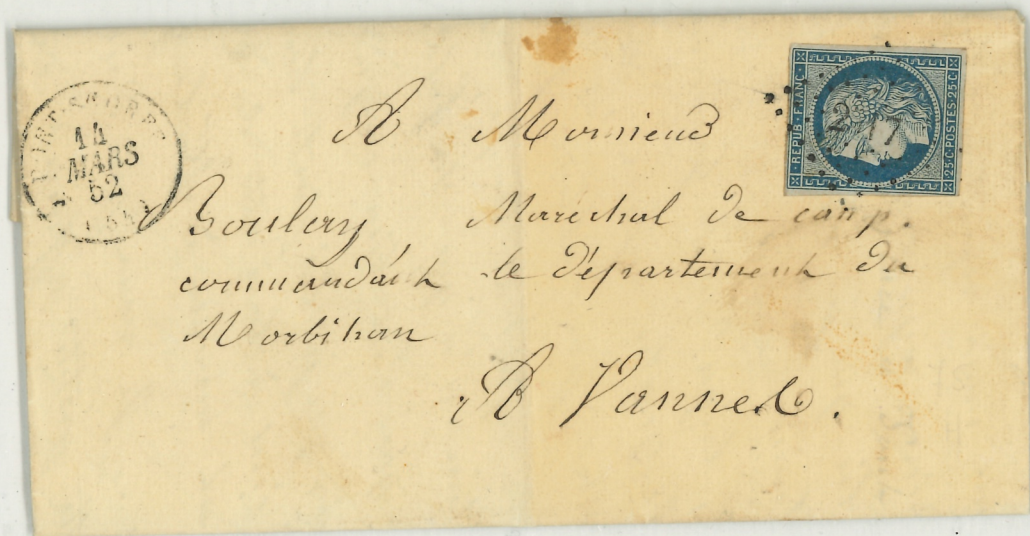 PONT-SCORFF
14
MARS
52
(54)
REPUB · FRANC ·
25 C · POSTES · 25 C
A Monsieur
Boulay Maréchal de camp.
commandant le département du
Morbihan
A Vannes.